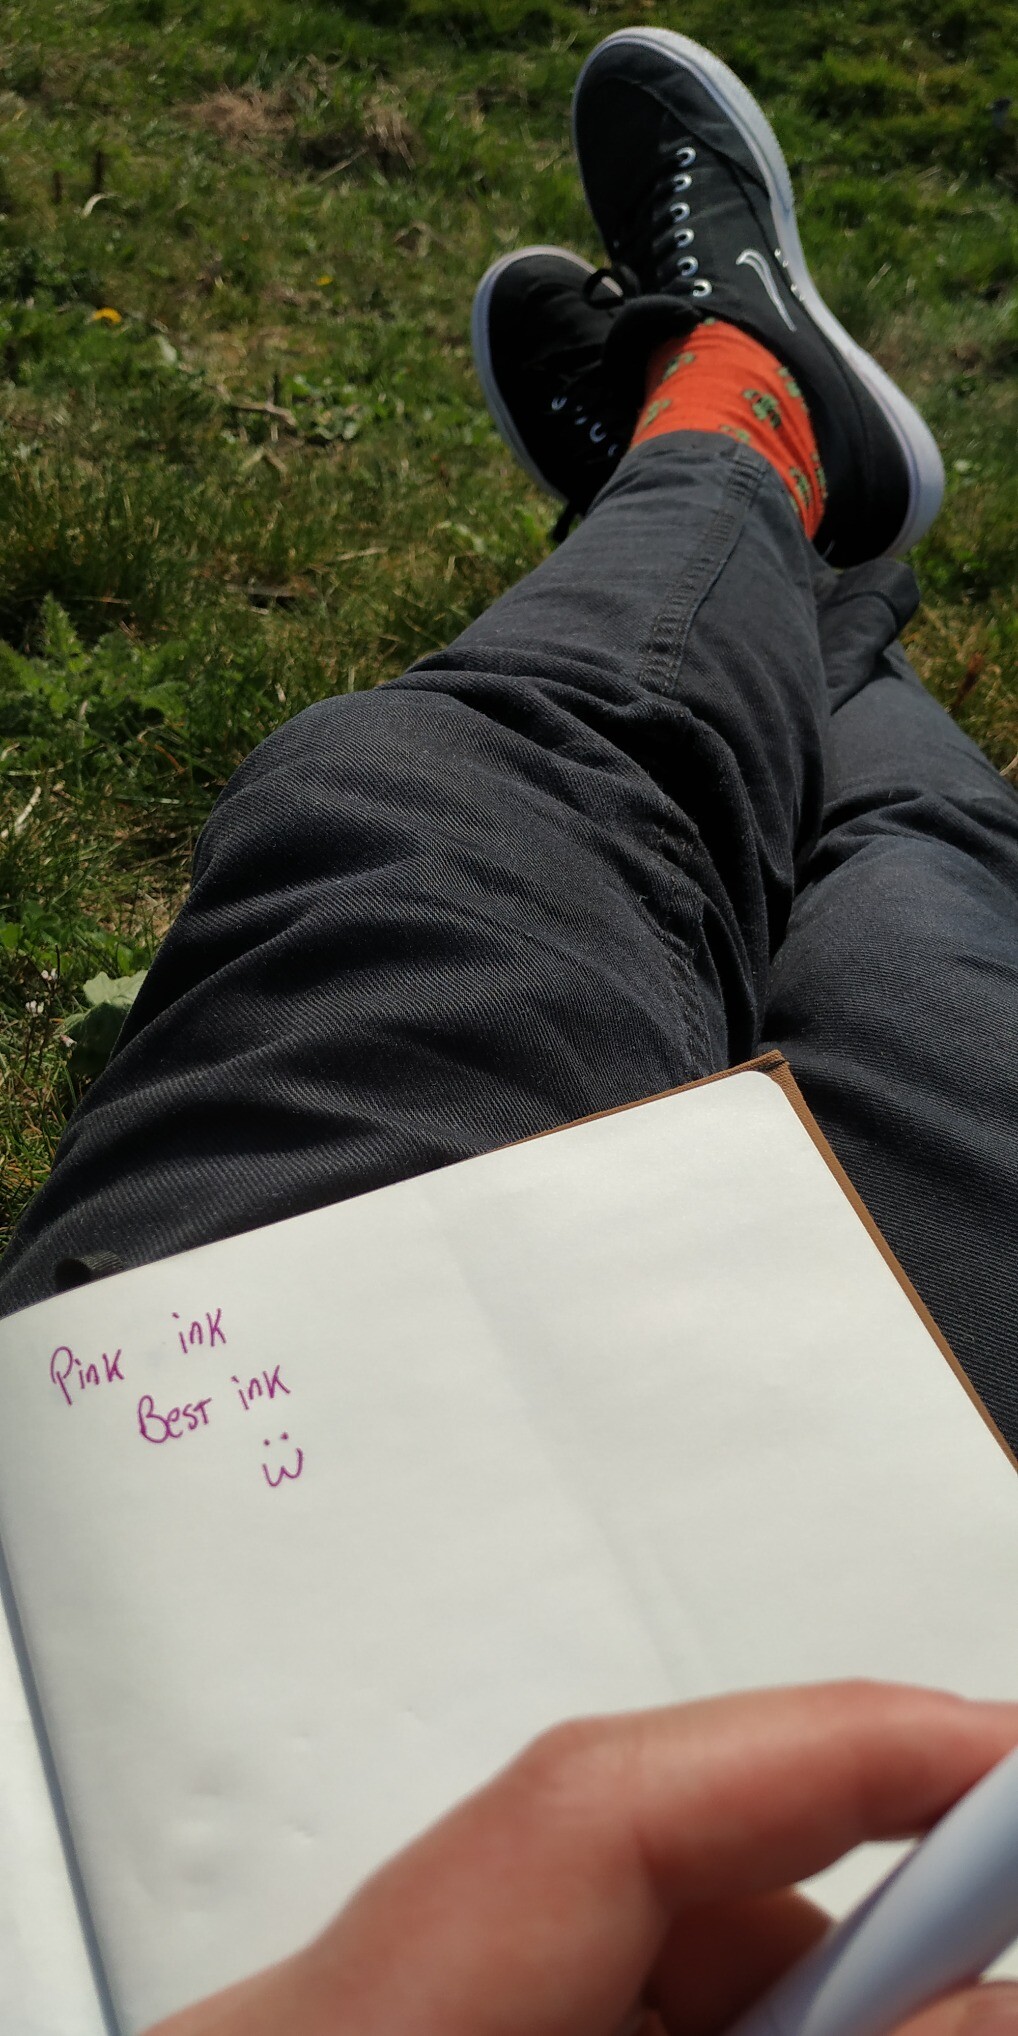 Pink ink
Best ink